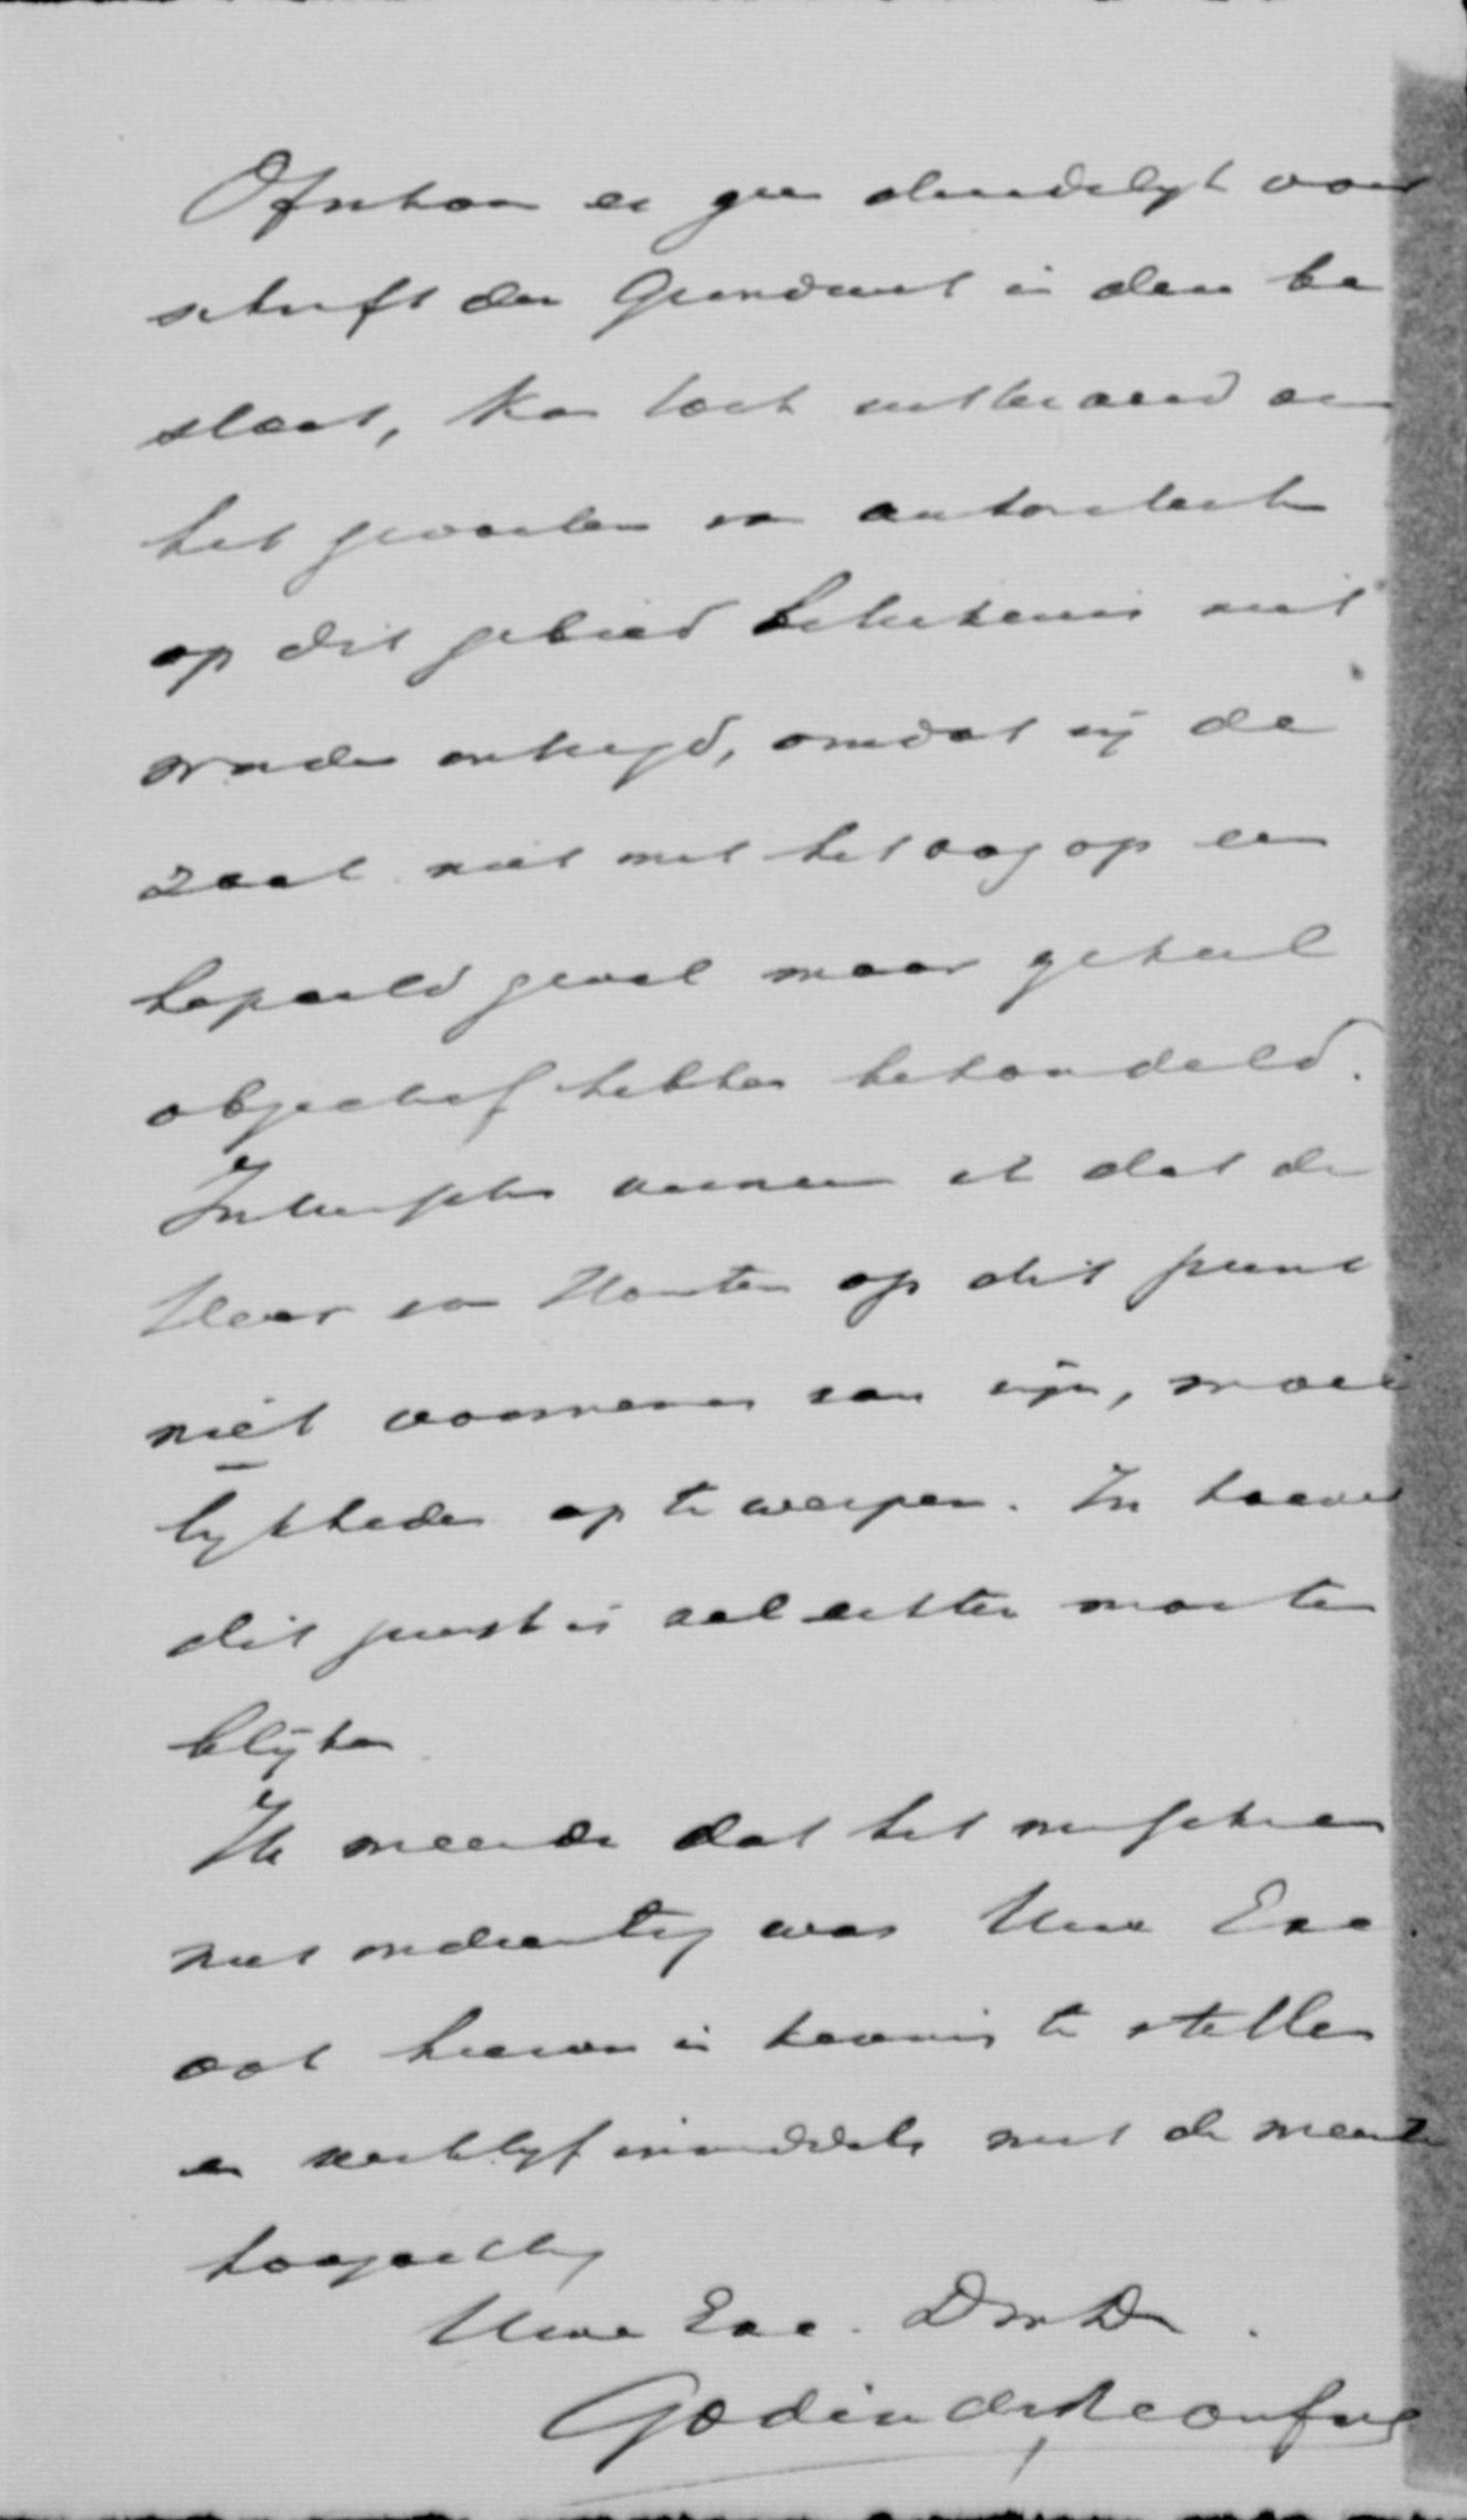 Ofschoon er geen duidelyk voor
schrift der Grondwet in deze be
staat, kan toch uiteraard aan
het gevoelen van autoriteiten
op dit gebied betekenis niet
worden ontzegd, omdat zij de
zaak niet met het oog op een
bepaald geval maar geheel
objectief hebben behandeld.
Intusschen verneem ik dat de
Heer van Houten op dit punt
niet voornemens zou zijn, moei
lykheden op te werpen. In hoever
dit juist is zal echter moeten
blijken
Ik meende dat het misschien
niet ondienstig was Uwe Exc.
ook hiervan in kennis te stellen
en verblyf inmiddels met de meeste
hoogachting
Uwe Exc. Dw Dr.
Godin de Beaufort